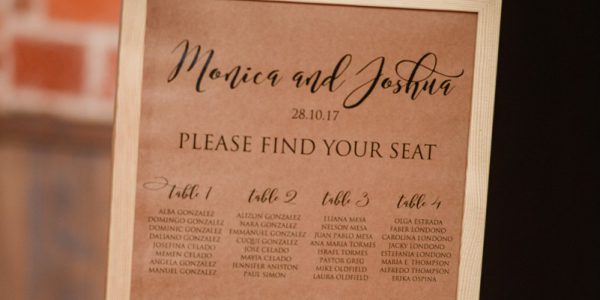 Monica and Joshua
28.10.17
PLEASE FIND YOUR SEAT
table 1
ALBA GONZALEZ
DOMINGO GONZALEZ
DOMINIC GONZALEZ
DALIANO GONZALEZ
JOSEFINA CELADO
MEMEN CELADO
ANGELA GONZALEZ
MANUEL GONZALEZ
table 2
ALIZON GONZALEZ
NARA GONZALEZ
EMMANUEL GONZALEZ
CUQUI GONZALEZ
JOSE CELADO
MAYIA CELADO
JENNIFER ANISTON
PAUL SIMON
table 3
ELIANA MESA
NELSON MESA
JUAN PABLO MESA
ANA MARIA TORMES
ISRAEL TORMES
PASTOR GREG
MIKE OLDFIELD
LAURA OLDFIELD
table 4
OLGA ESTRADA
FABER LONDONO
CAROLINA LONDONO
JACKY LONDONO
ESTEFANIA LONDONO
MARIA E. THOMPSON
ALFREDO THOMPSON
ERIKA OSPINA